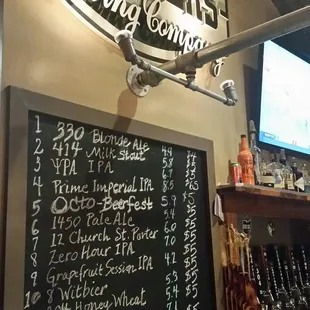 ing Company
1 330 Blonde Ale 4.4 $5
2 414 Milk Stout 5.8 $5
3 YPA IPA
4 Prime Imperial IPA 8.5
5 Octo Beerfest 5.9 $5
6 1450 Pale Ale $5
7 12 Church St. Porter $5
8 Zero Hour IPA $5
9 Grapefruit Session IPA $5
10 8 Witbier $5
Honey Wheat $5